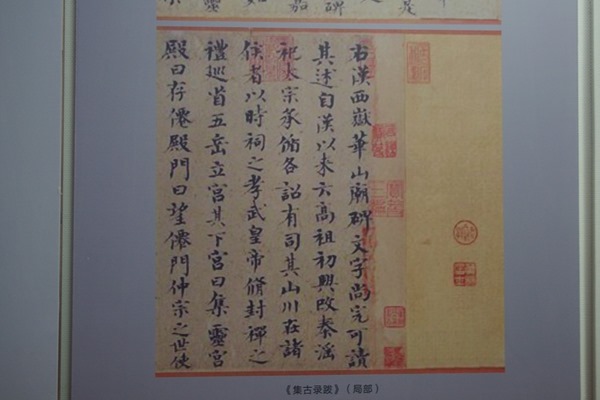 右漢西嶽華山廟碑文字尚完可讀
其述自漢以来云高祖初興改秦淫
祀太宗承循各詔有司其山川在諸
侯者以時祠之孝武皇帝脩封禪之
禮巡省五岳立宮其下宮曰集靈宮
殿曰存僊殿門曰望僊門仲宗之世使
《集古录跋》（局部）